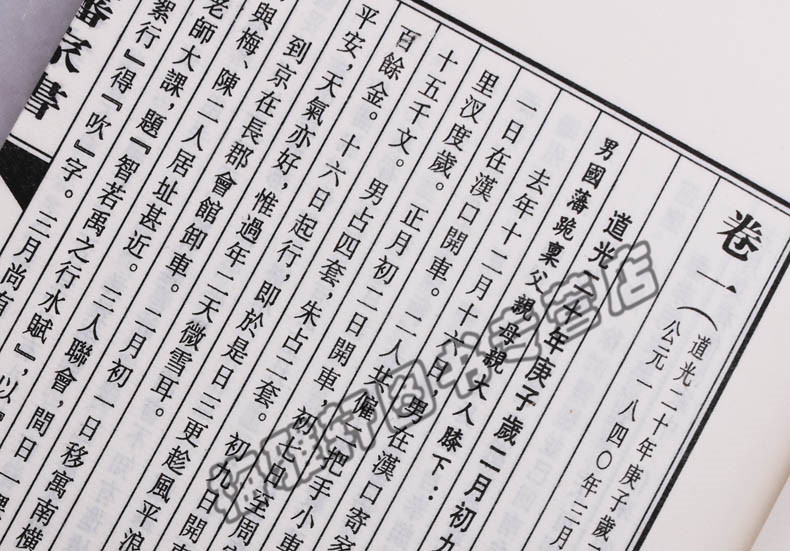 卷一（道光二十年庚子歲
公元一八四〇年三月
道光二十年庚子歲二月初九
男國藩跪稟父親母親大人膝下：
去年十二月十六日，男在漢口寄家
一日在漢口開車。二人共僱二把手小車
里汊度歲。正月初二日開車，初七日至周
十五千文。男占四套，朱占二套。初九日開車
百餘金。十六日起行，即於是日三更趁風平浪
平安，天氣亦好，惟過年二天微雪耳。
到京在長郡會館卸車。二月初一日移寓南橫
與梅、陳二人居址甚近。三人聯會，間日一
老師大課，題『智若禹之行水賦』，以
絮行』得『吹』字。三月尚有
藩家書
雅軒图书专营店